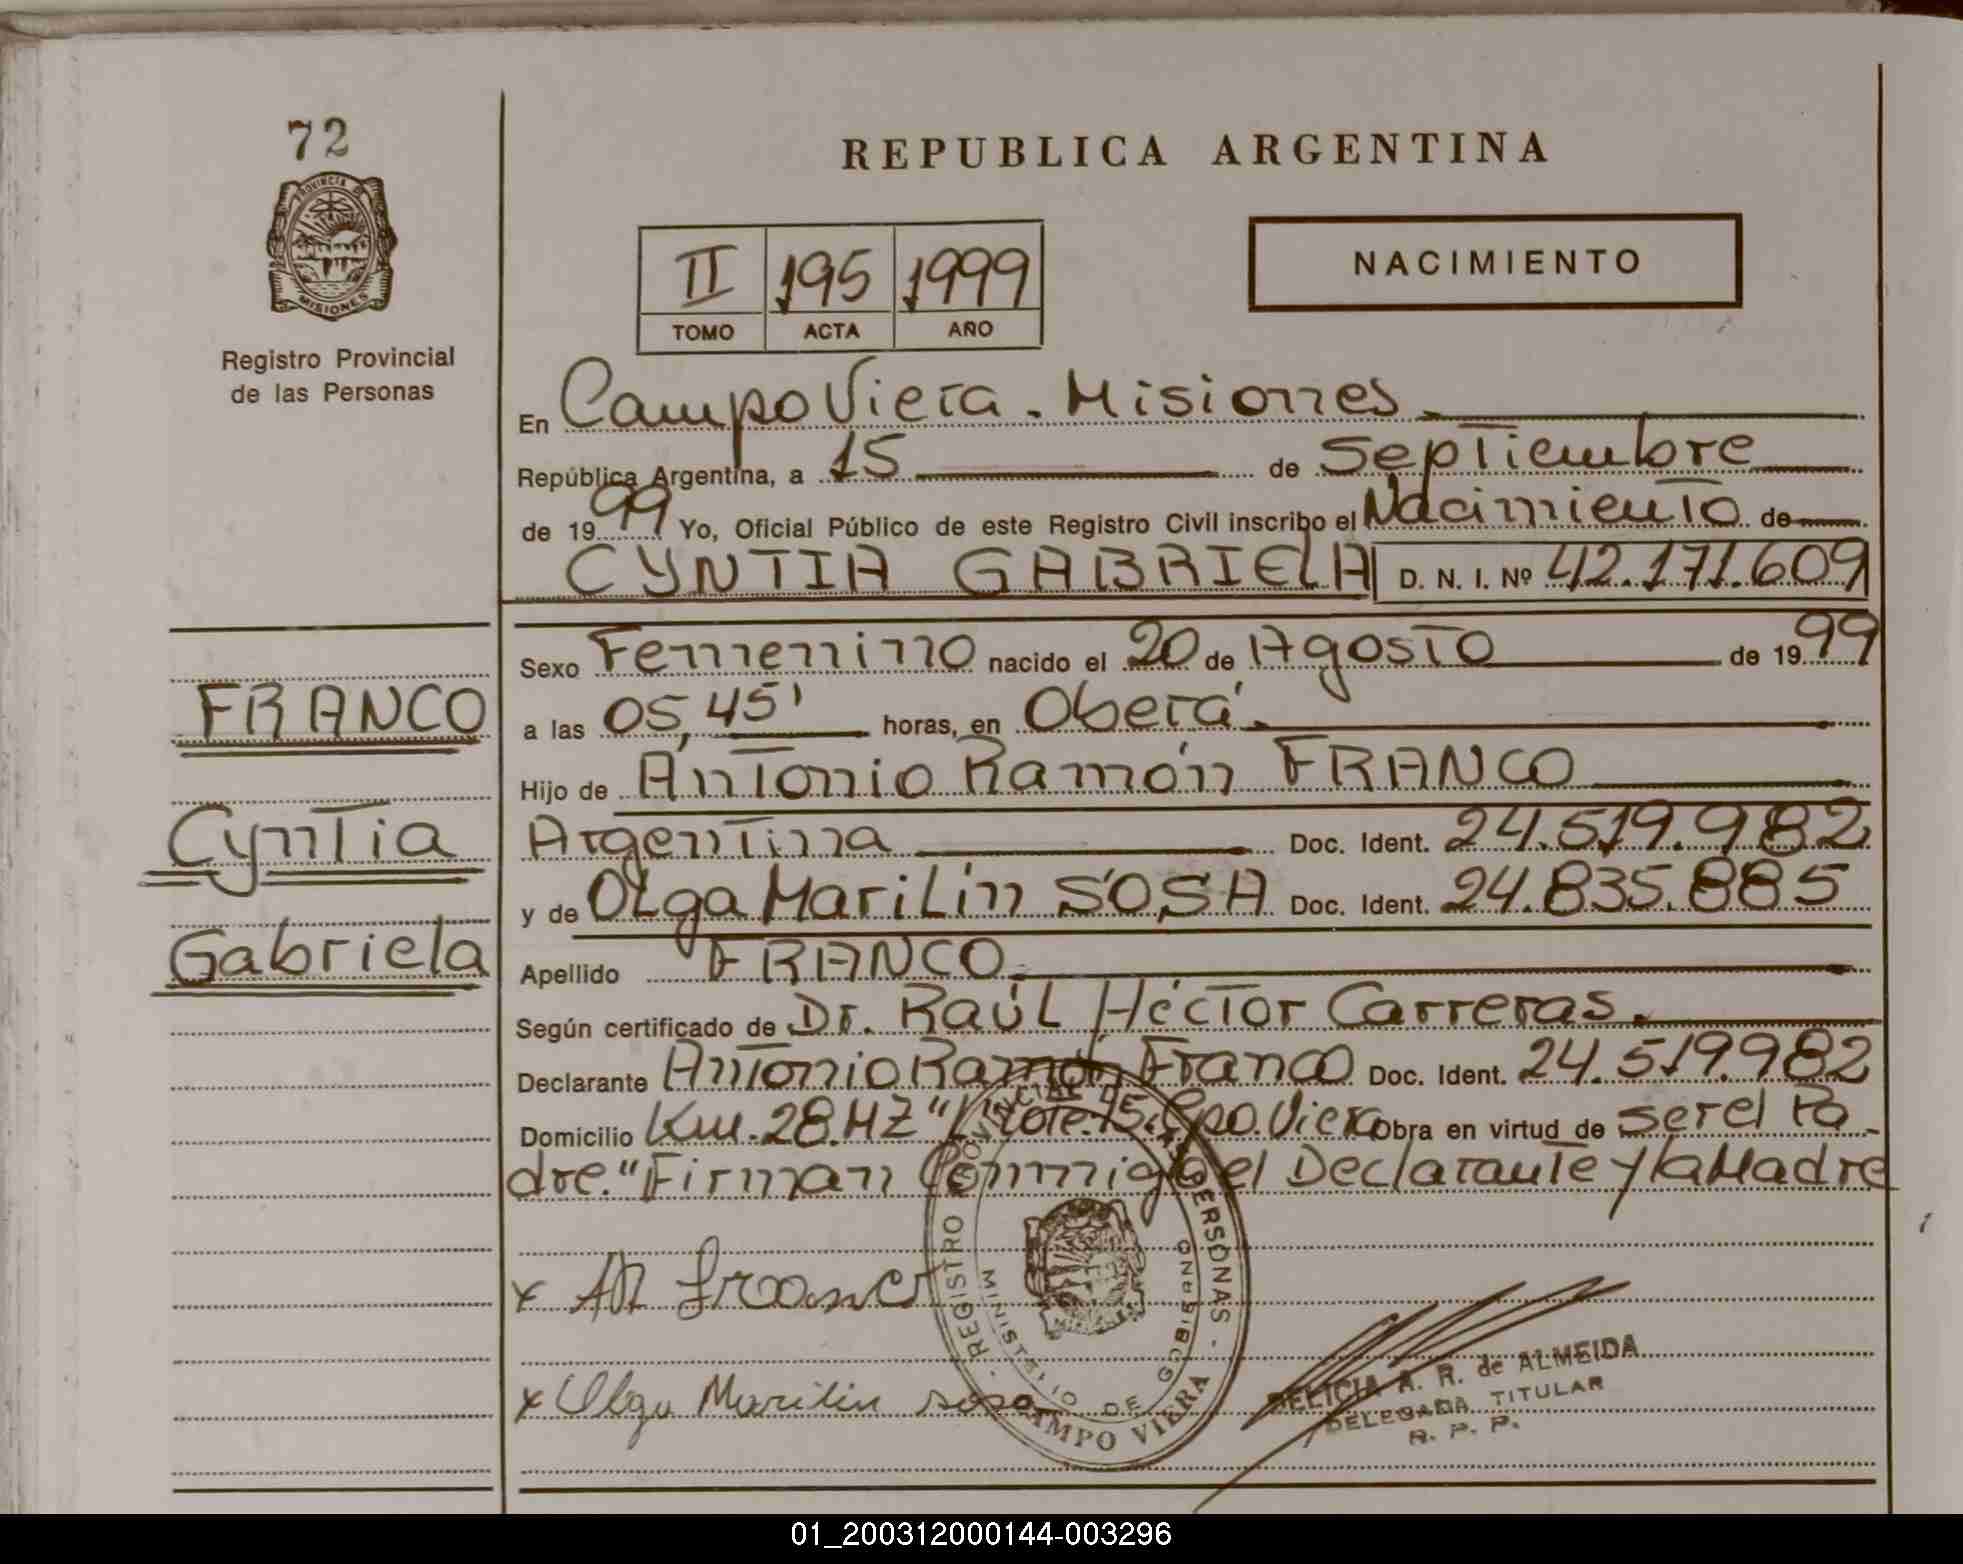 72
REPUBLICA ARGENTINA
PROVINCIA D
MISIONES
Registro Provincial
de las Personas
II 195 1999
TOMO ACTA AÑO
NACIMIENTO
En Campo Viera - Misiones
República Argentina, a 15 de Septiembre
de 1999 Yo, Oficial Público de este Registro Civil inscribo el Nacimiento de
CYNTIA GABRIELA D. N. I. Nº 42.171.609
Sexo Femenino nacido el 20 de Agosto de 1999
FRANCO
a las 05,45' horas, en Oberá.
Hijo de Antonio Ramón FRANCO
Cyntia
Argentina Doc. Ident. 24.519.982
y de OLga MariLin SOSA Doc. Ident. 24.835.885
Gabriela
Apellido FRANCO
Según certificado de Dr. Raúl Héctor Carreras.
Declarante Antonio Ramón Franco Doc. Ident. 24.519.982
Domicilio Km. 28. MZ "L" Lote. 15. Cpo. Viera Obra en virtud de ser el Pa-
dre." Firman Conmigo el Declarante y la Madre
x AR Franco
x Olga Marilin sosa
REGISTRO PROVINCIAL DE LAS PERSONAS -
MINISTERIO DE GOBIERNO
CAMPO VIERA
DELICIA A. R. de ALMEIDA
DELEGADA TITULAR
R. P. P.
01_200312000144-003296